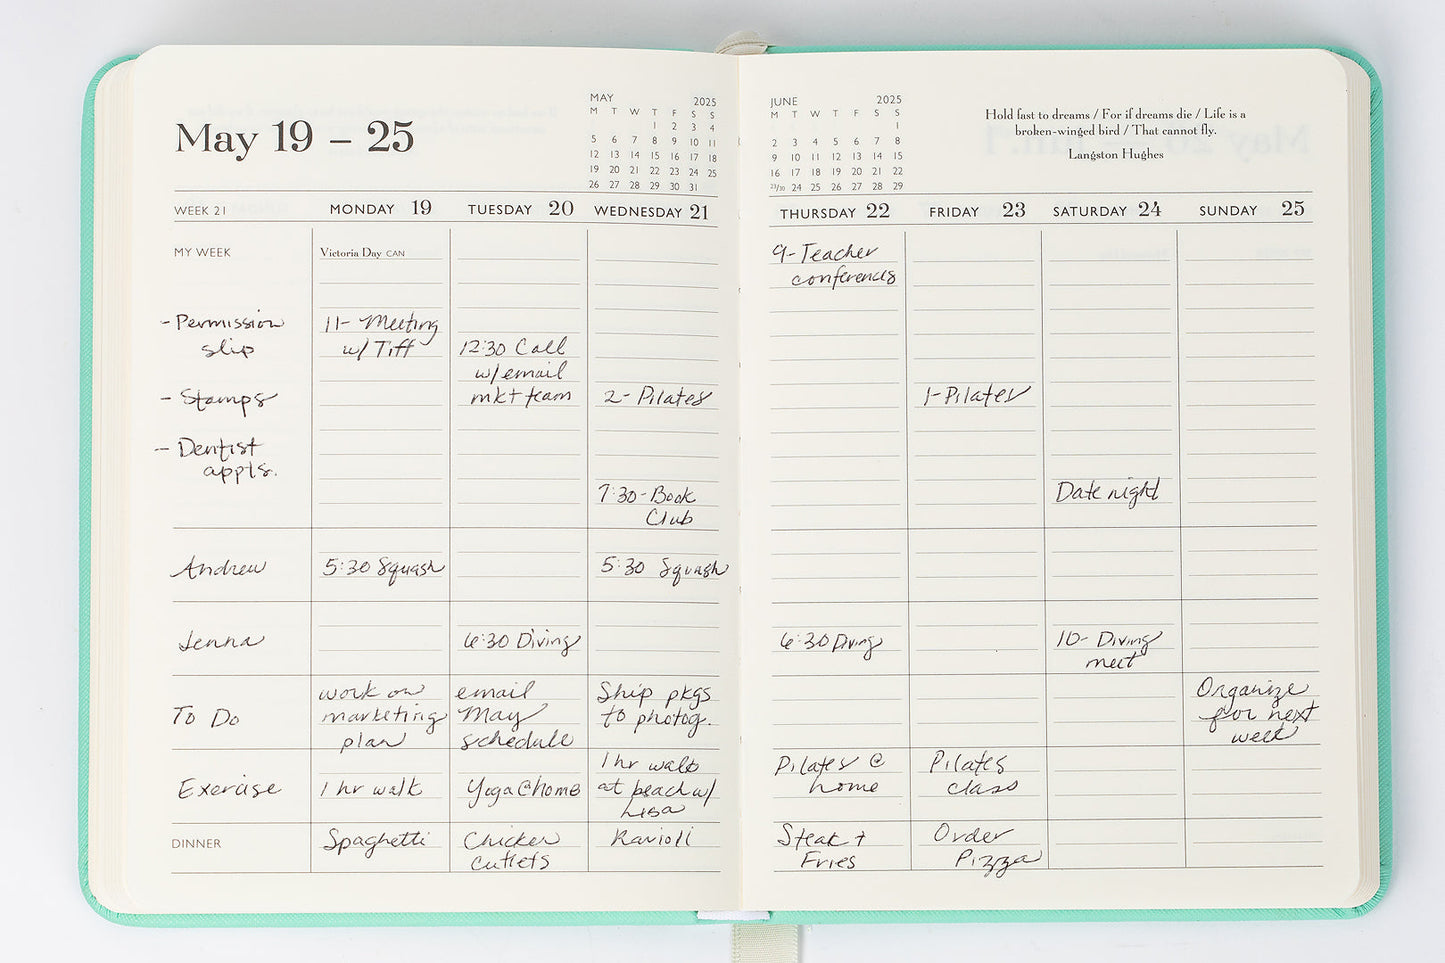 May 19 – 25
MAY 2025
M T W T F S S
1 2 3 4
5 6 7 8 9 10 11
12 13 14 15 16 17 18
19 20 21 22 23 24 25
26 27 28 29 30 31
JUNE 2025
M T W T F S S
1
2 3 4 5 6 7 8
9 10 11 12 13 14 15
16 17 18 19 20 21 22
23/30 24 25 26 27 28 29
Hold fast to dreams / For if dreams die / Life is a
broken-winged bird / That cannot fly.
Langston Hughes
WEEK 21 MONDAY 19 TUESDAY 20 WEDNESDAY 21 THURSDAY 22 FRIDAY 23 SATURDAY 24 SUNDAY 25
MY WEEK
- Permission
slip
- Stamps
- Dentist
appts.
Victoria Day CAN
11- Meeting
w/ Tiff
12:30 Call
w/ email
mkt team
2- Pilates
7:30- Book
Club
9- Teacher
conferences
1-Pilates
Date night
Andrew
5:30 Squash
5:30 Squash
Jenna
6:30 Diving
6:30 Diving
10- Diving
meet
To Do
work on
marketing
plan
email
May
schedule
Ship pkgs
to photog.
Organize
for next
week
Exercise
1 hr walk
Yoga @ home
1 hr walk
at beach w/
Lisa
Pilates @
home
Pilates
class
DINNER
Spaghetti
Chicken
cutlets
Ravioli
Steak +
Fries
Order
Pizza